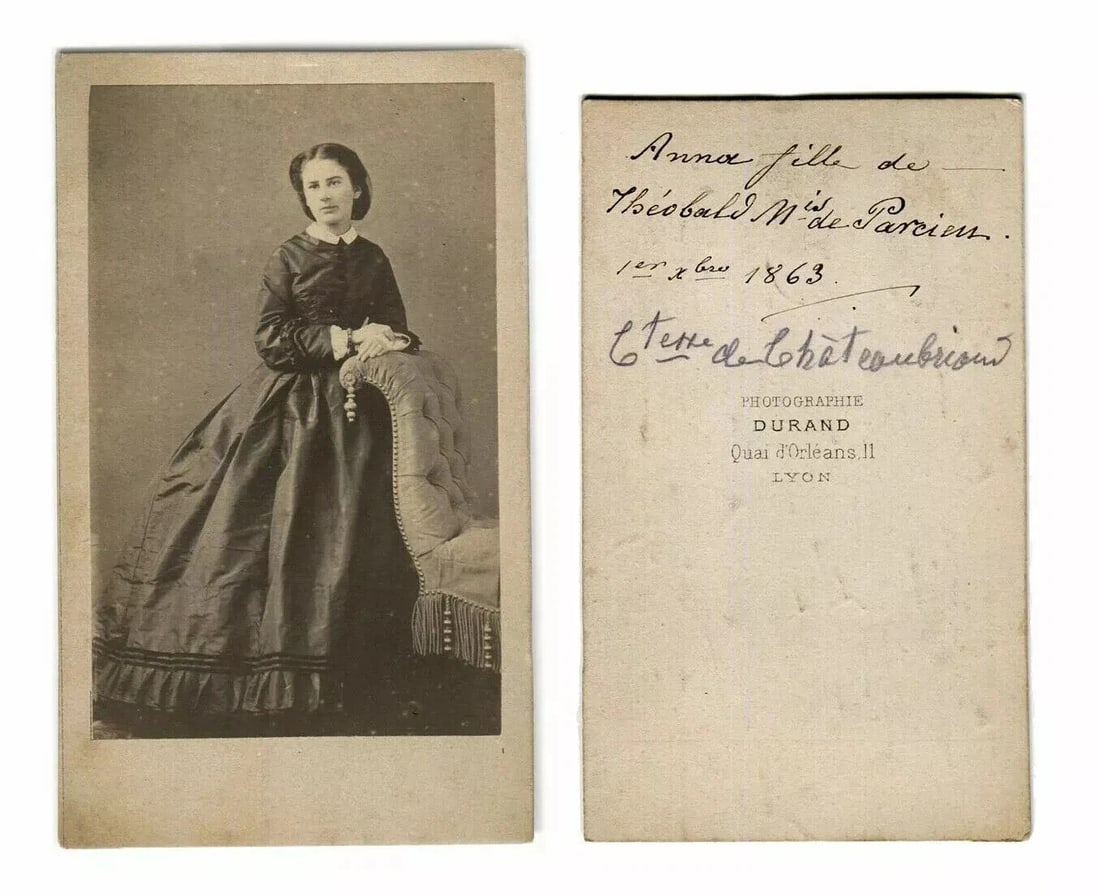 Anna fille de —
Théobald Mis de Parcieu.
1er xbre 1863.
Ctesse de Châteaubriand
PHOTOGRAPHIE
DURAND
Quai d'Orléans, 11
LYON